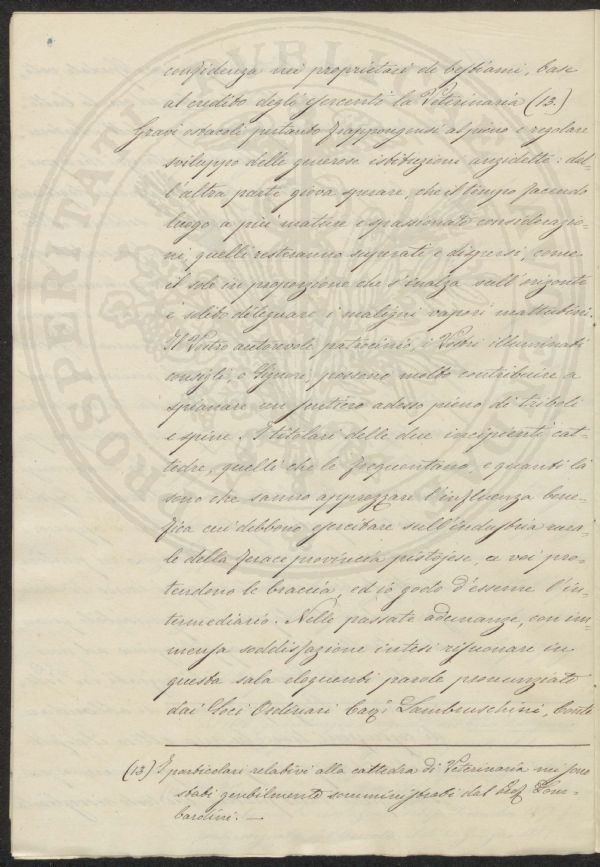 confidenza nei proprietari di bestiami, base
al credito degli esercenti la Veterinaria (13.)
Gravi ostacoli pertanto frappongonsi al pieno e regolare
sviluppo delle generose istituzioni anzidette: dal-
l'altra parte giova sperare, che il tempo facendo
luogo a più mature e spassionate considerazio-
ni, quelli resteranno superati e dispersi, come
il sole in proporzione che s'inalza sull'orizonte
è solito dileguare i maligni vapori mattutini.
Il Vostro autorevole patrocinio, i Vostri illuminati
consigli, o Signori, possono molto contribuire a
spianare un sentiero adesso pieno di triboli
e spine. I titolari delle due incipienti cat-
tedre, quelli che le frequentano, e quanti là
sono che sanno apprezzare l'influenza bene-
fica cui debbono esercitare sull'industria rura-
le della ferace provincia pistojese, a voi pro-
tendono le braccia, ed io godo d'esserne l'in-
termediario. Nelle passate adunanze, con im-
mensa soddisfazione intesi risuonare in
questa sala eloquenti parole pronunziate
dai Soci Ordinari Cavi. Lambruschini, Conte
(13) I particolari relativi alla cattedra di Veterinaria mi sono
stati gentilmente somministrati dal Prof. Lom-
bardini. —
PROSPERITATI PUBLICAE